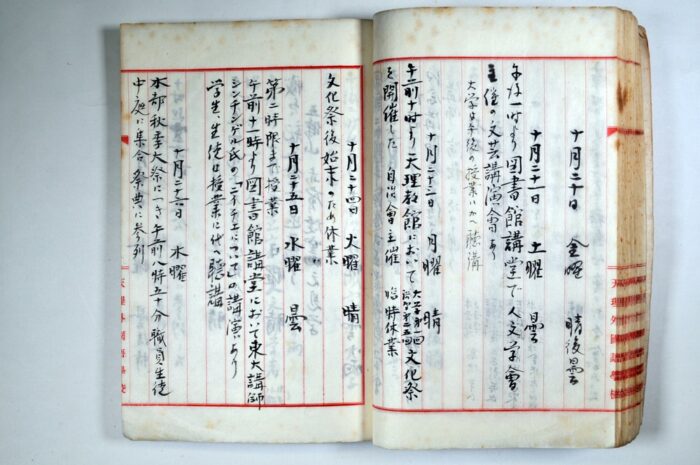 十月二十日 金曜 晴後曇
十月二十一日 土曜 曇
午后一時より図書館講堂で人文学會
主催の文芸講演會あり
大学は午後の授業にかへ聴講
十月二十三日 月曜 晴
午前十時より天理教館において大学第一回文化祭
を開催した 自治會主催 臨時休業
十月二十四日 火曜 晴
文化祭後始末のため休業
十月二十五日 水曜 曇
第二時限まで授業
午前十一時より図書館講堂において東大講師
シンチンゲル氏のニイチェについての講演あり
学生、生徒は授業に代へ聴講
十月二十六日 木曜
本部秋季大祭につき午前八時五十分職員生徒
中庭に集合 祭典に参列